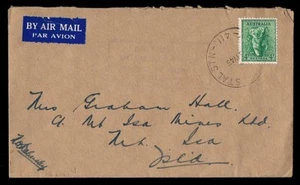 BY AIR MAIL
PAR AVION
AUSTRALIA
Mrs Graham Hall.
C. Mt Isa Mines Ltd.
Mt Isa
Qld.